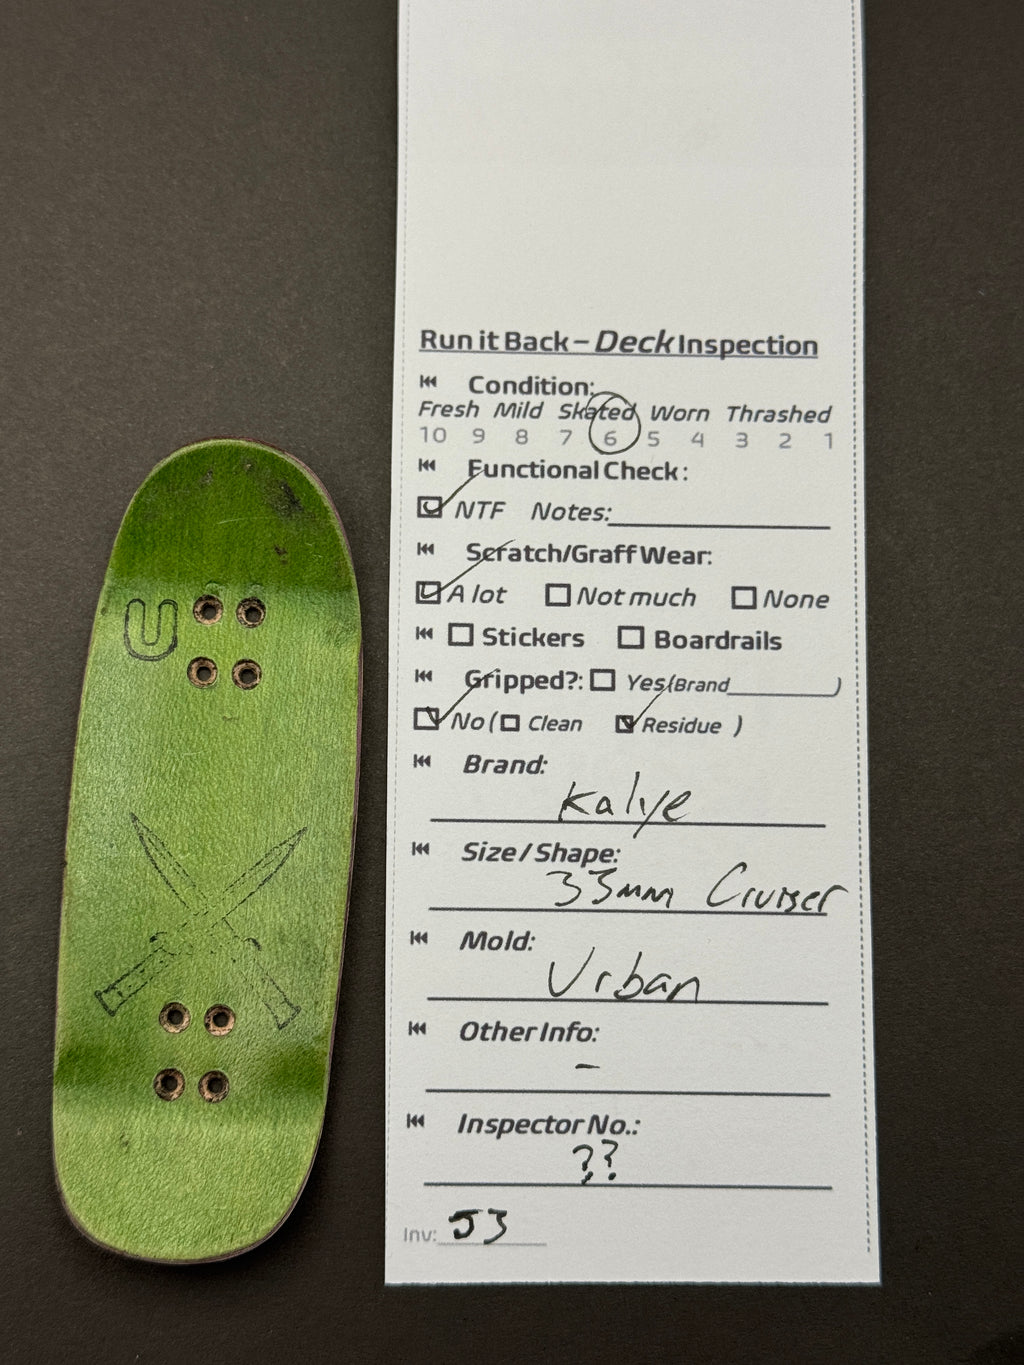 Run it Back – Deck Inspection
Condition:
Fresh Mild Skated Worn Thrashed
10 9 8 7 6 5 4 3 2 1
Functional Check:
NTF Notes:
Scratch/Graff Wear:
A lot Not much None
Stickers Boardrails
Gripped?: Yes(Brand )
No ( Clean Residue )
Brand:
Kalye
Size/Shape:
33mm Cruiser
Mold:
Urban
Other Info:
–
Inspector No.:
??
Inv: 53
U